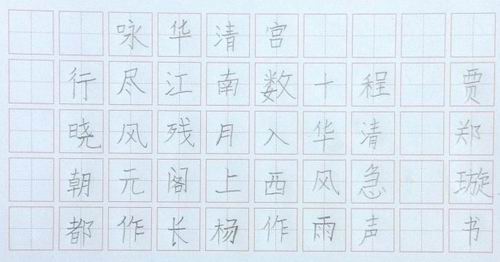 咏华清宫
行尽江南数十程 贾
晓风残月入华清 郑
朝元阁上西风急 璇
都作长杨作雨声 书